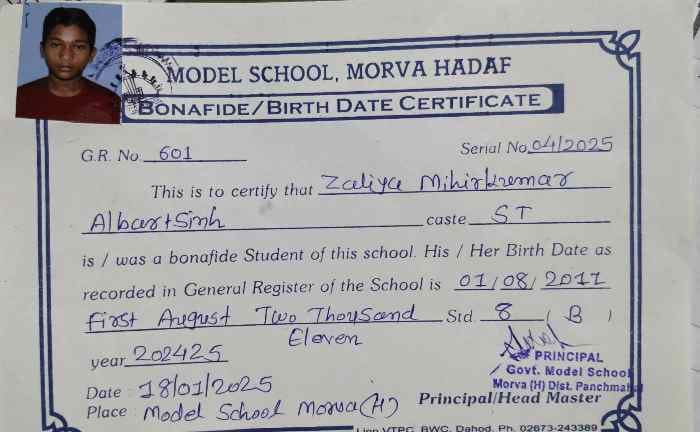 MODEL SCHOOL, MORVA HADAF
BONAFIDE/BIRTH DATE CERTIFICATE
G.R. No. 601 Serial No. 04/2025
This is to certify that Zaliya Mihirkumar
Albartsinh caste ST
is / was a bonafide Student of this school. His / Her Birth Date as
recorded in General Register of the School is 01/08/2011
First August Two Thousand Std. 8 ( B )
Eleven
year 202425
PRINCIPAL
Govt. Model School
Morva (H) Dist. Panchmahal
Date : 18/01/2025
Principal/Head Master
Place : Model School Morva (H)
VTPC, BWC, Dahod. Ph. 02673-243389